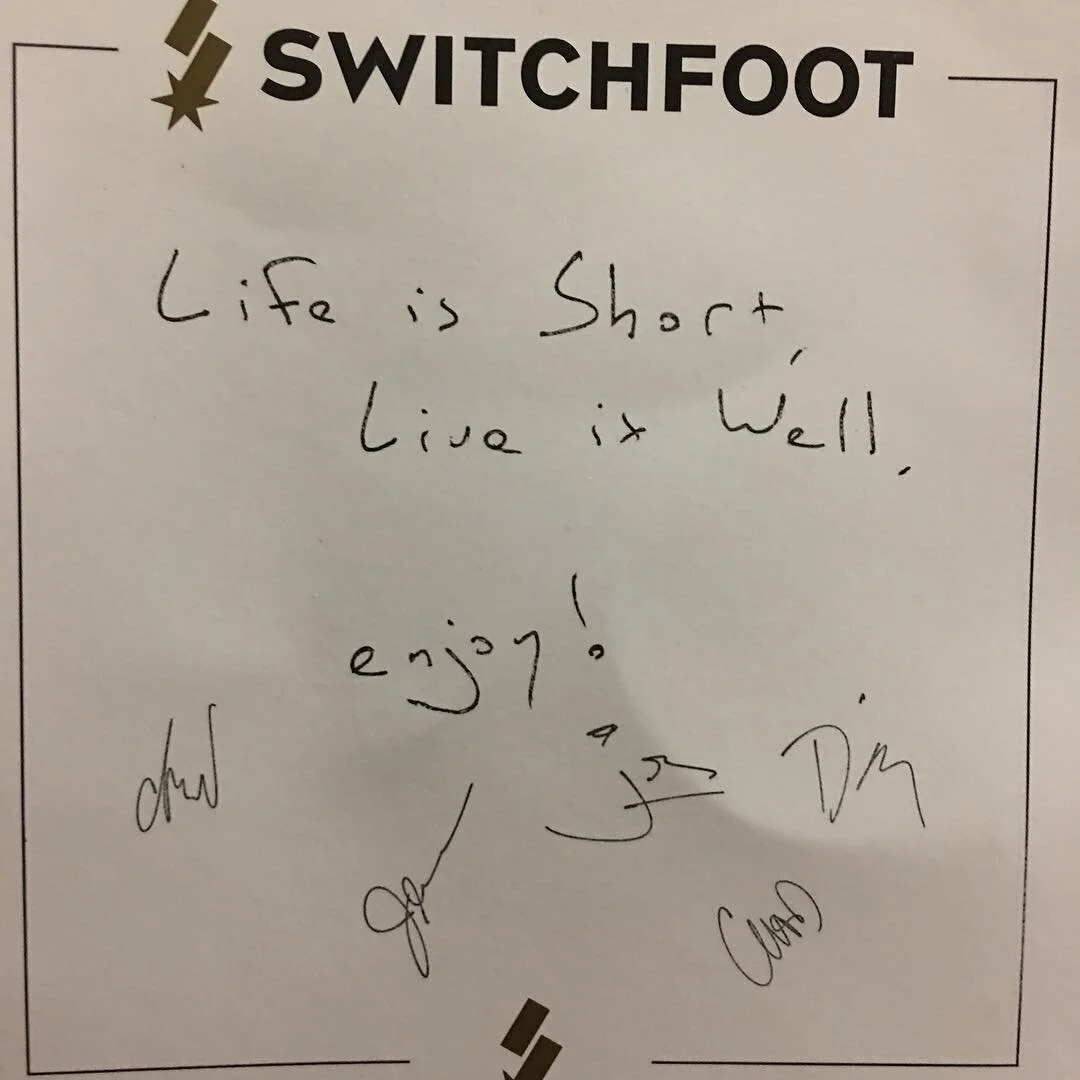 SWITCHFOOT
Life is Short,
Live it Well.
enjoy!
Drew
jon
Tim
Jer
CHAD